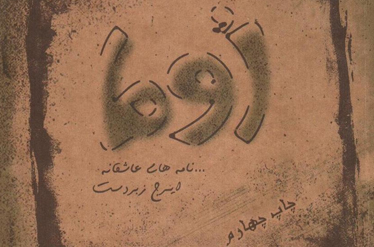 أوما
...نامه های عاشقانه
ایرج زبردست
چاپ چهارم